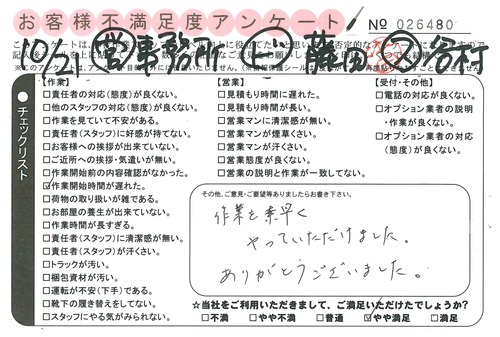 お客様不満足度アンケート
№ 026480
10/21 営 事務所 藤田 谷村
チェックリスト
【作業】
□責任者の対応(態度)が良くない。
□他のスタッフの対応(態度)が良くない。
□作業を見ていて不安がある。
□責任者(スタッフ)に好感が持てない。
□お客様への挨拶が出来ていない。
□ご近所への挨拶・気遣いが無い。
□作業開始前の内容確認がなかった。
☑作業開始時間が遅れた。
□荷物の取り扱いが雑である。
□お部屋の養生が出来ていない。
□作業時間が長すぎる。
□責任者(スタッフ)に清潔感が無い。
□責任者(スタッフ)が汗くさい。
□トラックが汚い。
□梱包資材が汚い。
□運転が不安(下手)である。
□靴下の履き替えをしてない。
□スタッフにやる気がみられない。
【営業】
□見積もり時間に遅れた。
□見積もり時間が長い。
□営業マンに清潔感が無い。
□営業マンが煙草くさい。
□営業マンが汗くさい。
□営業態度が良くない。
□営業の説明と作業が一致してない。
【受付・その他】
□電話の対応が良くない。
□オプション業者の説明
・作業が良くない。
□オプション業者の対応
(態度)が良くない。
その他、ご意見・ご要望等ありましたらお書き下さい。
作業を素早く
やっていただけました。
ありがとうございました。
☆当社をご利用いただきまして、ご満足いただけたでしょうか?
□不満 □やや不満 □普通 ☑やや満足 □満足